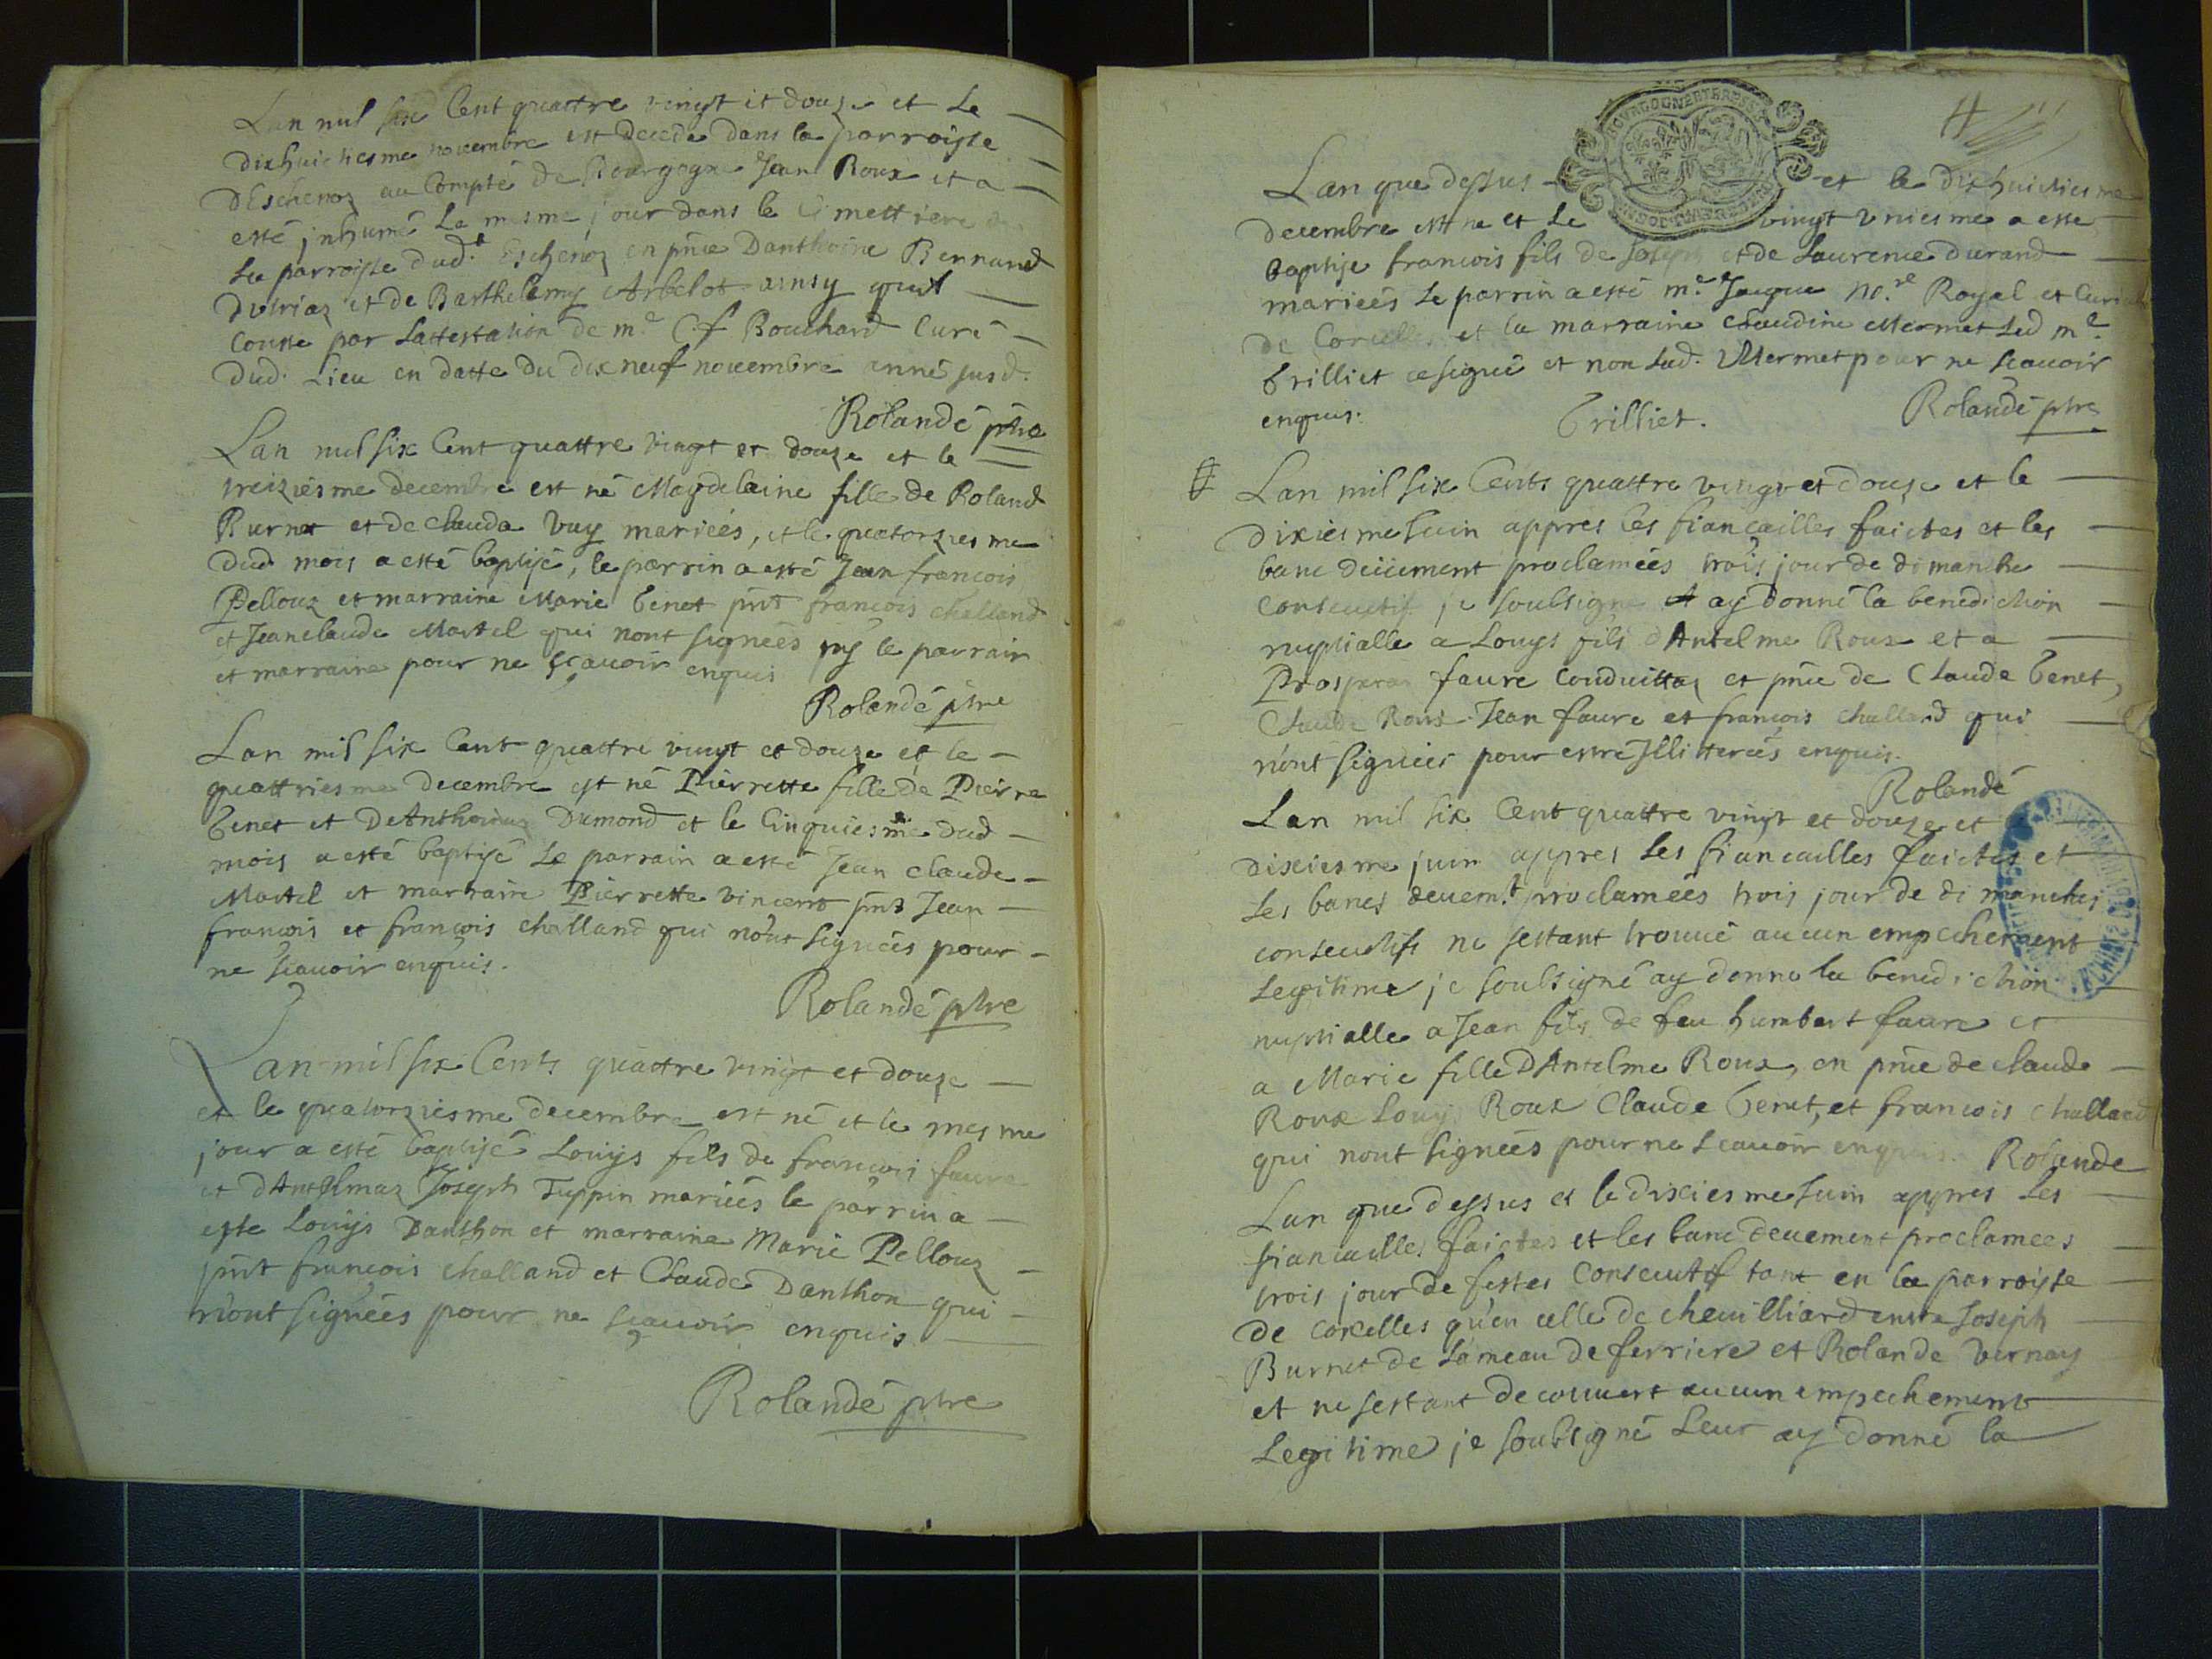 Lan mil six Cent quattre vingt et douze et Le
dixhuictiesme novembre est decede dans la parroisse
dEschenoz au Compté de Bourgogne Jean Roux et a
esté jnhumé Le mesme jour dans le Cimettiere de
La parroisse dud.t Eschenoz en pnce Danthoine Bernard
et de Barthelemy Arbelot ainsy quil
Conste par Lattestation de m.e C.f Bouchard Curé
dud. Lieu en datte du dix neuf novembre anné susd.
Rolandé ptre
Lan mil six Cent quattre vingt et douze et le
treiziesme decembre est né Magdelaine fille de Roland
Burnet et de Clauda Vuy mariées, et le quatorziesme
dud mois a esté baptisé, le parrin a esté Jean francois
Pellouz et marraine Marie benet pnt francois Challand
et Jeanclaude Martel qui nont signées ny le parrain
et marraine pour ne sçavoir enquis
Rolandé ptre
Lan mil six Cent quattre vingt et douze et le
quattriesme decembre est né Pierrette fille de Pierre
benet et DeAnthoinaz Dumond et le Cinquiesme dud
mois a esté baptisé Le parrain a esté Jean claude
Martel et marraine Pierrette vincent pnt Jean
francois et francois challand qui nont signées pour
ne scavoir enquis.
Rolandé ptre
Lan mil six Cents quattre vingt et douze
et le quatorziesme decembre est né et le mesme
jour a esté baptisé Louys fils de francois faure
et dAntelmaz Joseph Tuppin mariées le parrin a
este Louys Danthon et marraine Marie Pellouz
pnt francois challand et Claude Danthon qui
nont signées pour ne sçavoir enquis
Rolandé ptre
BOURGOGNE ET BRESSE
Lan que dessus et le dixhuictiesme
decembre est ne et Le vingt vniesme a este
baptise francois fils de Joseph et de Laurence durand
mariées Le parrin a esté m.e Jaque no.re Royal et Curial
de Corcelles et la marraine claudine Mermet Led m.e
brilliet a signé et non Lad. Mermet pour ne scavoir
enquis. Brilliet. Rolandé ptre
Lan mil six Cents quattre vingt et douze et le
dixiesme Juin appres les fiancailles faictes et les
banc deüement proclamées trois jour de dimanche
Consecutif je soubsigne ay donné la benediction
nuptialle a Louys fils dAntelme Roux et a
Prosperaz faure Conduittaz et pnce de Claude benet,
Claude Roux Jean faure et francois challand qui
n'ont signées pour estre Jllitterées enquis.
Rolandé
Lan mil six Cent quattre vingt et douze et
dixiesme juin appres Les fiancailles faictes et
Les bancs deuem.t proclamées trois jour de dimanches
consecutifs ne sestant trouué aucun empechement
Legitime je soubsigné ay donne la benediction
nuptialle a Jean fils de feu humbert faure et
a Marie fille DAntelme Roux, en pnce de claude
Roux Louys Roux Claude benet, et francois challand
qui nont signées pour ne scauoir enquis. Rolande
Lan que dessus et le dixiesme Juin appres Les
fiancailles faictes et les banc deuement proclamees
trois jour de festes Consecutif tant en la parroisse
de corcelles qu'en celle de cheuilliard entre Joseph
Burnet de Lameau de ferriere et Rolande vernay
et ne sestant decouuert aucun empechement
Legitime je soubsigné Leur ay donné la